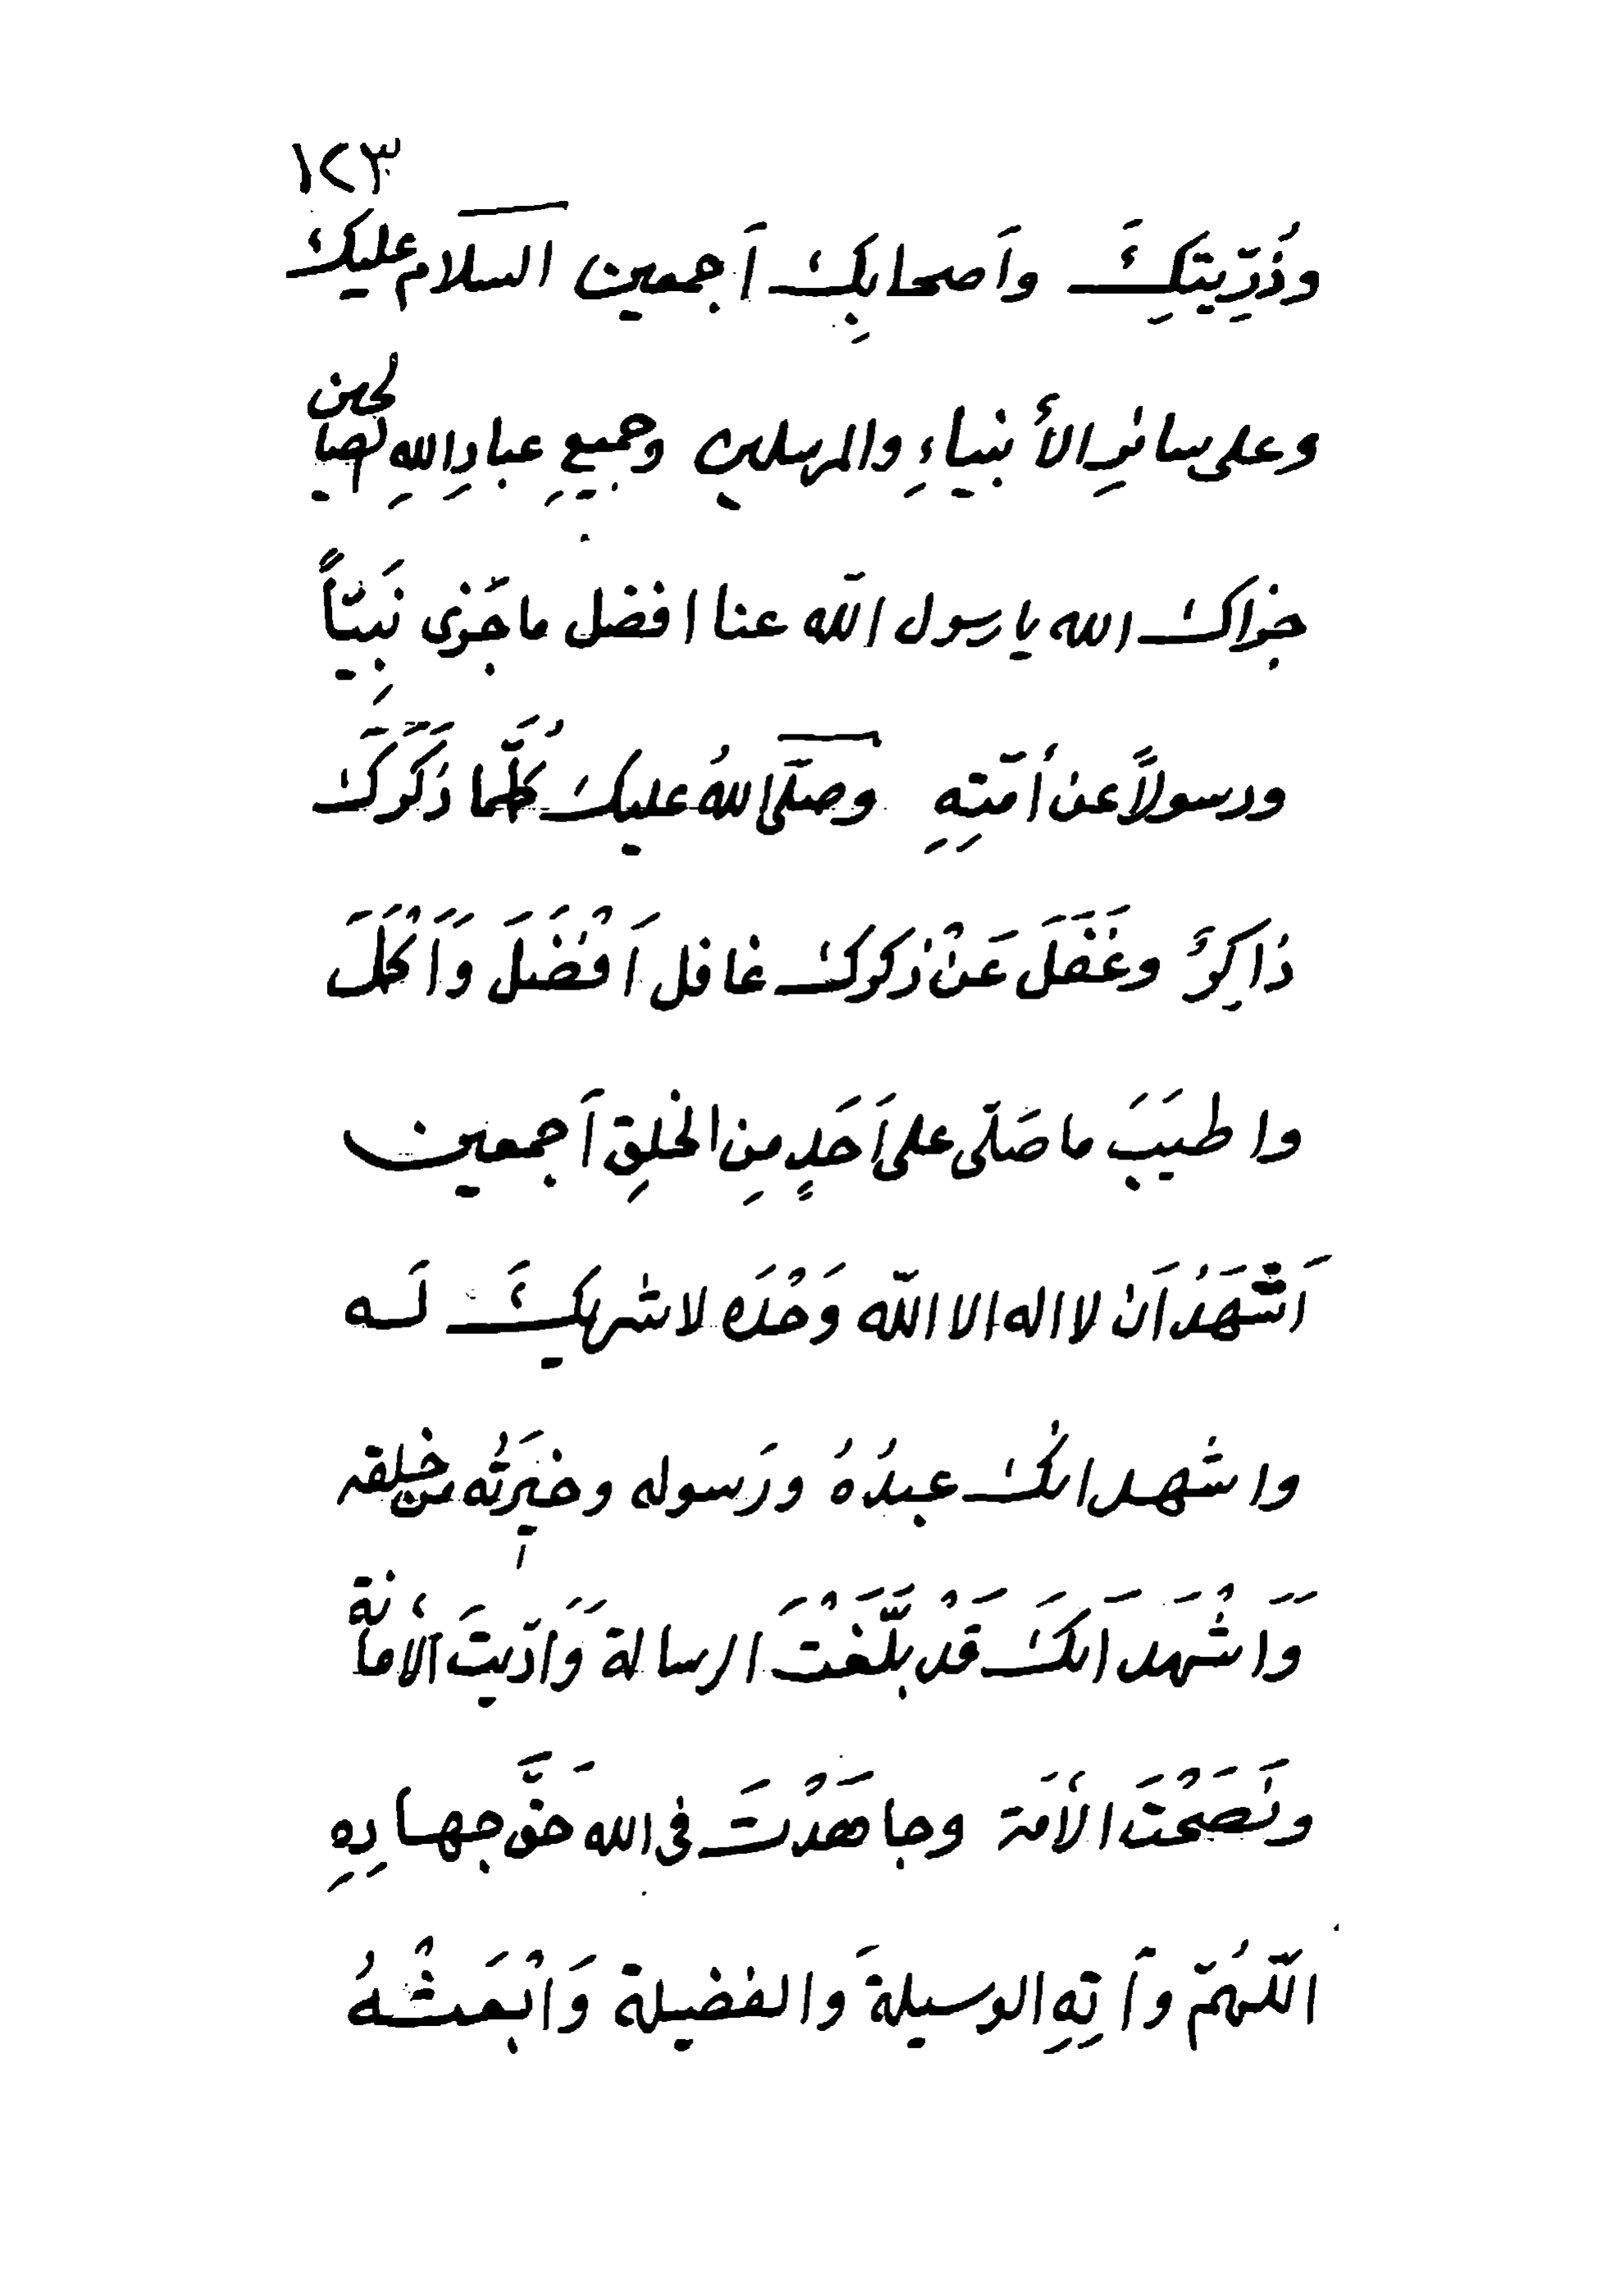 ١٢٣
وذُرِّيتِكَ وأَصحابِك أَجمعين السلام عليك
وعلى سائرِ الأنبياءِ والمرسلين وجميعِ عبادِ اللهِ الصالحين
جزاك الله يا رسول الله عنا افضل ما جَزى نَبِيّاً
ورسولاً عن أمّتِهِ وصلَّى اللهُ عليك كُلَّما ذَكَرَكَ
ذاكِرٌ وغَفَلَ عَنْ ذكرك غافل اَفْضَلَ وَاَكْمَلَ
واطيَبَ ما صَلّى على اَحَدٍ مِن الخلقِ اَجمعين
اَشْهَدُ اَن لا اله الا الله وَحْدَه لا شريكَ لَه
واشهد انك عبدُهُ ورَسوله وخِيَرتُه من خلقه
وَاَشْهَد اَنكَ قَدْ بَلَّغْتَ الرسالة وَاَدّيتَ الأمانة
ونَصَحْتَ الأمَة وجاهَدْتَ فى الله حَقَّ جهادِهِ
اللّهُمّ وآتِهِ الوسيلةَ والفضيلة وَابْعَثْهُ